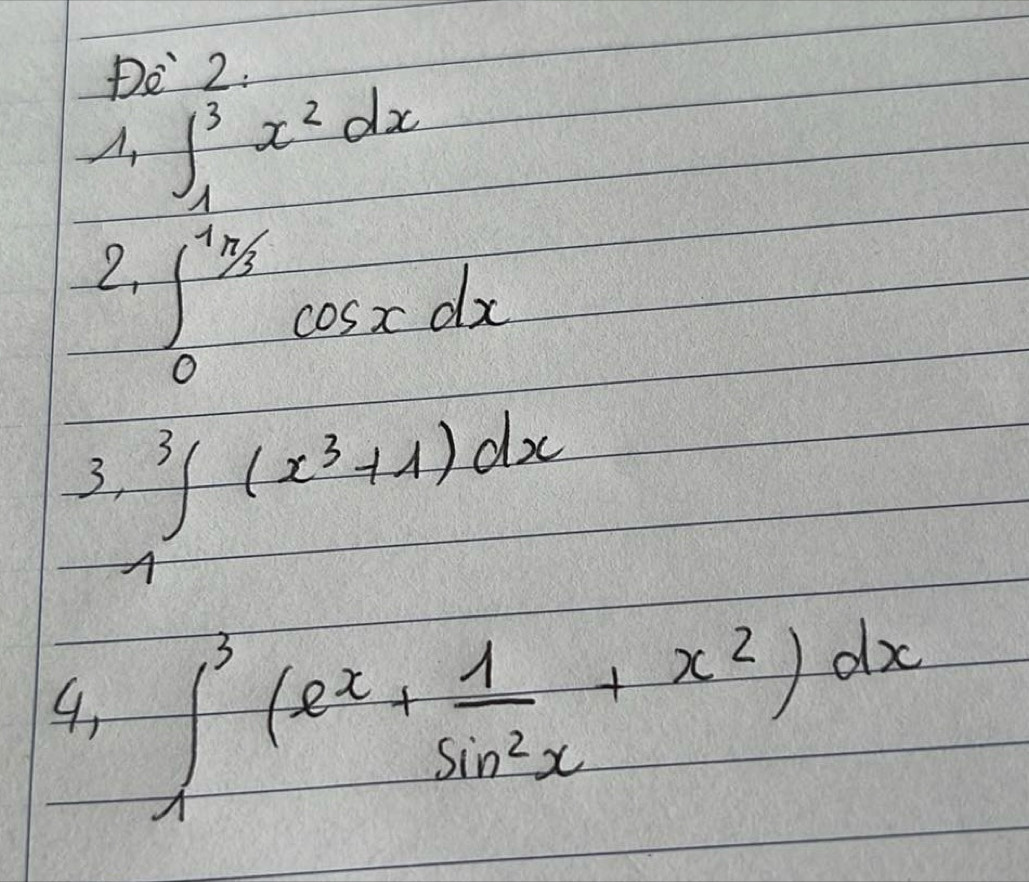 Đề 2:
1, ∫₁³ x² dx
2, ∫₀^{1π/3} cosx dx
3, ∫₁³ (x³+1) dx
4, ∫₁³ (eˣ + 1/sin²x + x²) dx